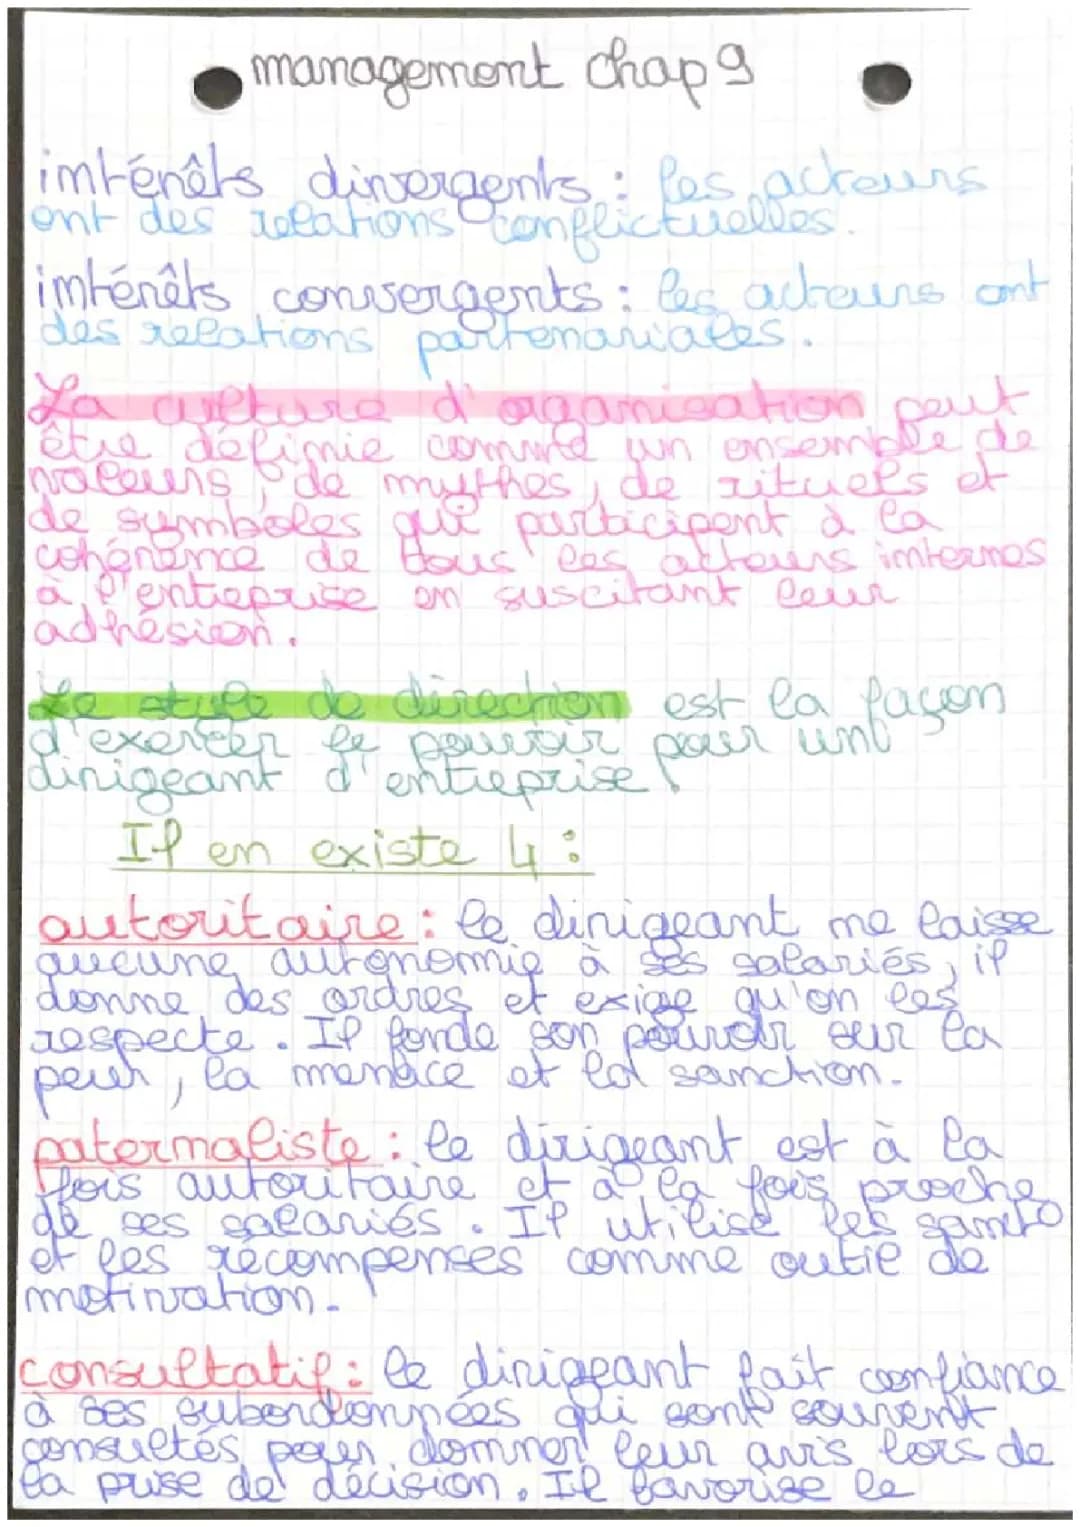 management chap 9
intérêts divergents : les acteurs
ont des relations conflictuelles.
intérêts convergents : les acteurs ont
des relations partenariales.
La culture d'organisation peut
être définie comme un ensemble de
valeurs, de mythes, de rituels et
de symboles qui participent à la
cohérence de tous les acteurs internes
à l'entreprise en suscitant leur
adhésion.
Le style de direction est la façon
d'exercer le pouvoir pour un
dirigeant d'entreprise.
Il en existe 4 :
autoritaire : le dirigeant ne laisse
aucune autonomie à ses salariés, il
donne des ordres et exige qu'on les
respecte. Il fonde son pouvoir sur la
peur, la menace et la sanction.
paternaliste : le dirigeant est à la
fois autoritaire et à la fois proche
de ses salariés. Il utilise les sanct°
et les récompenses comme outil de
motivation.
consultatif : le dirigeant fait confiance
à ses subordonnées qui sont souvent
consultés pour donner leur avis lors de
la prise de décision. Il favorise le